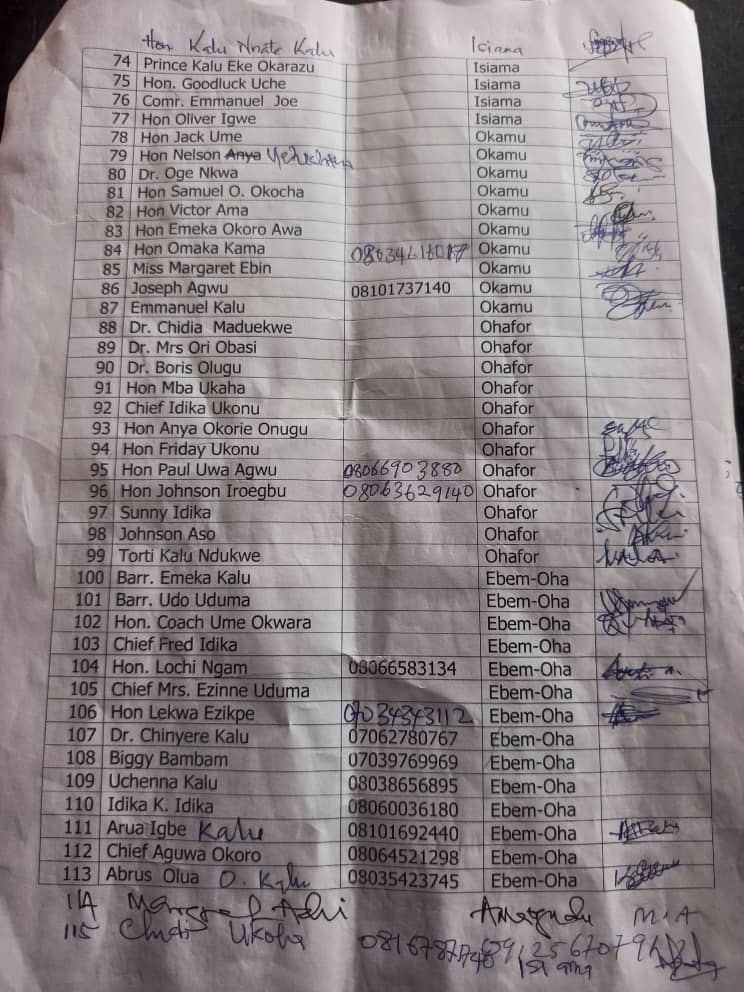 Hon Kalu Nnate Kalu Isiama
74 Prince Kalu Eke Okarazu Isiama
75 Hon. Goodluck Uche Isiama
76 Comr. Emmanuel Joe Isiama
77 Hon Oliver Igwe Isiama
78 Hon Jack Ume Okamu
79 Hon Nelson Anya Okamu
80 Dr. Oge Nkwa Okamu
81 Hon Samuel O. Okocha Okamu
82 Hon Victor Ama Okamu
83 Hon Emeka Okoro Awa Okamu
84 Hon Omaka Kama Okamu
85 Miss Margaret Ebin Okamu
86 Joseph Agwu 08101737140 Okamu
87 Emmanuel Kalu Okamu
88 Dr. Chidia Maduekwe Ohafor
89 Dr. Mrs Ori Obasi Ohafor
90 Dr. Boris Olugu Ohafor
91 Hon Mba Ukaha Ohafor
92 Chief Idika Ukonu Ohafor
93 Hon Anya Okorie Onugu Ohafor
94 Hon Friday Ukonu Ohafor
95 Hon Paul Uwa Agwu 08066903880 Ohafor
96 Hon Johnson Iroegbu 08063629140 Ohafor
97 Sunny Idika Ohafor
98 Johnson Aso Ohafor
99 Torti Kalu Ndukwe Ohafor
100 Barr. Emeka Kalu Ebem-Oha
101 Barr. Udo Uduma Ebem-Oha
102 Hon. Coach Ume Okwara Ebem-Oha
103 Chief Fred Idika Ebem-Oha
104 Hon. Lochi Ngam 08066583134 Ebem-Oha
105 Chief Mrs. Ezinne Uduma Ebem-Oha
106 Hon Lekwa Ezikpe 07034343112 Ebem-Oha
107 Dr. Chinyere Kalu 07062780767 Ebem-Oha
108 Biggy Bambam 07039769969 Ebem-Oha
109 Uchenna Kalu 08038656895 Ebem-Oha
110 Idika K. Idika 08060036180 Ebem-Oha
111 Arua Igbe Kalu 08101692440 Ebem-Oha
112 Chief Aguwa Okoro 08064521298 Ebem-Oha
113 Abrus Olua O. Kalu 08035423745 Ebem-Oha
114 M.A
115 Chidi Ukoha
Isiama